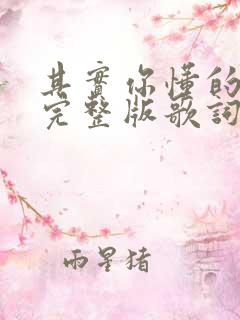 其實你懂的
完整版歌詞
雨星猪